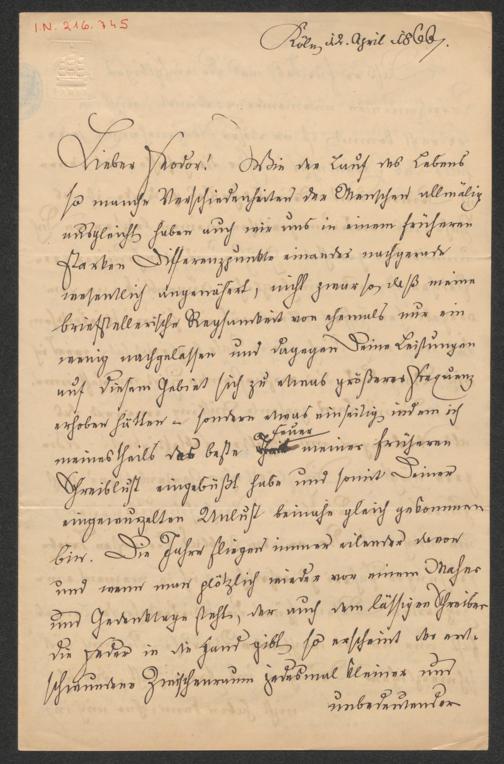 I.N. 216.745
Köln, 12. April 1866.
Lieber Theodor! Wie der Lauf des Lebens
so manche Verschiedenheiten der Menschen allmälig
ausgleicht, haben auch wir uns in einem früheren
starken Differenzpunkte einander nachgerade
wesentlich angenähert, nicht zwar so, daß meine
briefstellerische Regsamkeit von ehemals nur ein
wenig nachgelassen und dagegen Deine Leistungen
auf diesem Gebiet sich zu etwas größerer Frequenz
erhoben hätten – sondern etwas einseitig, indem ich
meinestheils das beste Feuer meiner früheren
Schreiblust eingebüßt habe und somit Deiner
eingewurzelten Unlust beinahe gleich gekommen
bin. Die Jahre fliegen immer eilender davon
und wenn man plötzlich wieder vor einem Mahner
und Gedenktage steht, der auch dem lässigen Schreiber
die Feder in die Hand gibt, so erscheint der ent-
schwundene Zwischenraum jedesmal kleiner und
unbedeutender